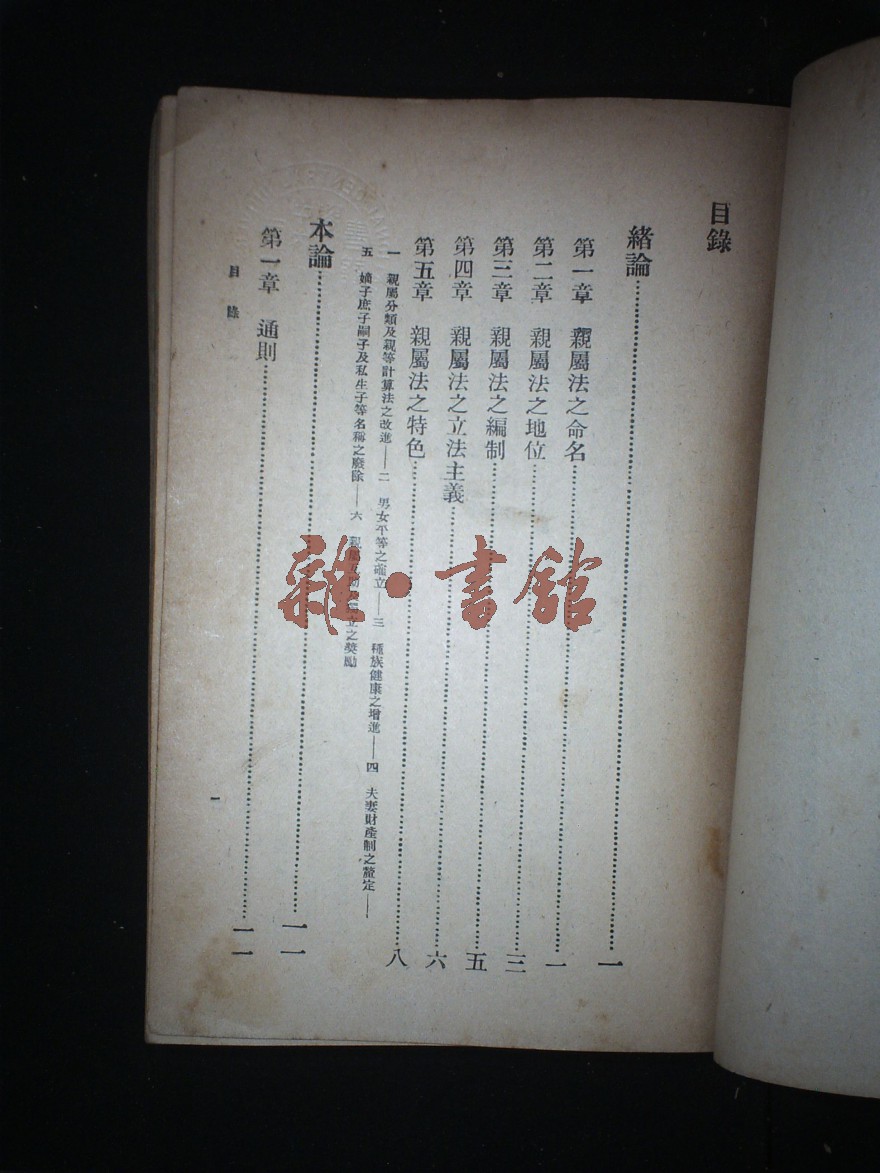 目錄
緒論……………一
第一章　親屬法之命名……………一
第二章　親屬法之地位……………三
第三章　親屬法之編制……………五
第四章　親屬法之立法主義……………六
第五章　親屬法之特色……………八
一　親屬分類及親等計算法之改進——二　男女平等之確立——三　種族健康之增進——四　夫妻財產制之釐定——
五　嫡子庶子嗣子及私生子等名稱之廢除——六　親屬互助立之獎勵
本論……………一一
第一章　通則……………一一
目錄
一
雜·書館